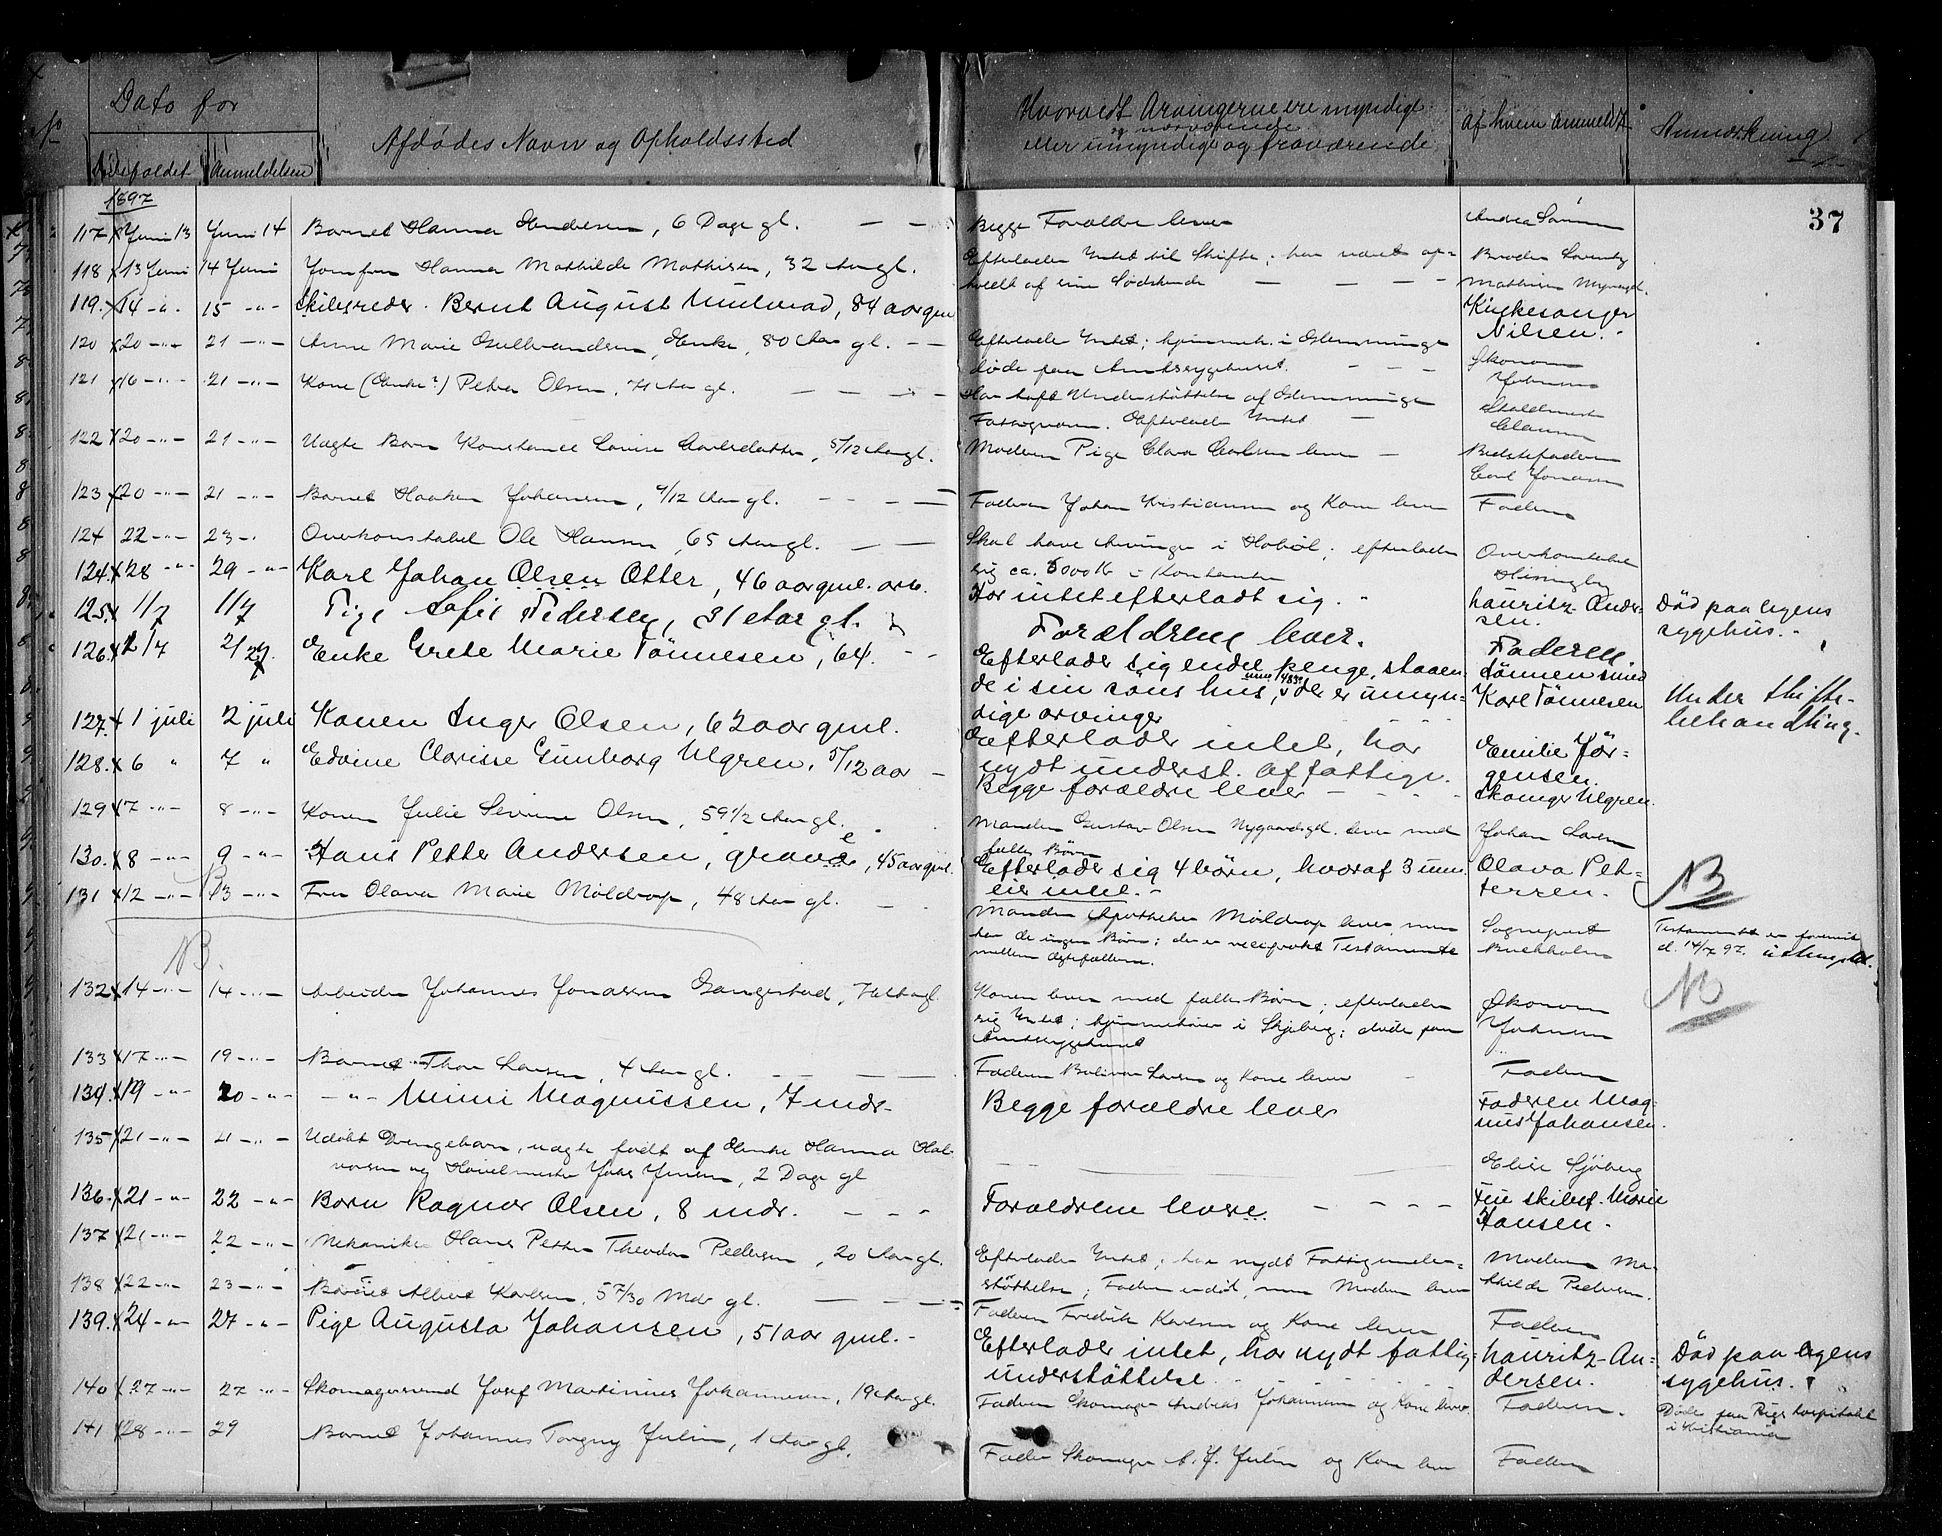 Dato for
Dödsfaldet Anmeldelsen
Afdödes Navn og Opholdssted
Hvorvidt Arvingerne ere myndige
og nærværende
eller umyndige og fraværende
Af hvem anmeldt
Anmærkning
37
1897
117 Juni 13 Juni 14 Barnet Hanna Andersen, 6 Dage gl. Begge Forældre lever Andrea
118 13 Juni 14 Juni Jomfru Hanna Mathilde Mathisen, 32 Aar gl. Efterlader Intet til Skifte; har været op- Broder
holdt af sine Södskende Mathisen
119. 14 -"- 15 -"- Skibsreder Bernt August 84 aar gml Kirkesanger
Nilsen.
120 20 -"- 21 -"- Anne Marie Gulbrandsen, Enke, 80 Aar gl. Efterlader Intet; hjemmeh. i Glemminge Ökonom
döde paa Amtssygehuset. Johnsen
121 16 -"- 21 -"- Kone (Enke?) Petra Olsen, 71 Aar gl. Har havt Understöttelse af Glemminge
Fattigvæsen. Efterlader Intet
122 20 -"- 21 -"- Uægte Barn Konstance Lovise Carlsdatter, 5/12 Aar gl. Moderen Pige Clara Carlsen lever Bedstefaderen
Carl Jonassen
123 20 -"- 21 -"- Barnet Haakon Johansen, 4/12 Aar gl. Faderen Johan Kristiansen og Kone lever Faderen
124 22 -"- 23 -"- Overkonstabel Ole Hansen, 65 Aar gl. Skal have Arvinger i Hoböl; efterlader Overkonstabel
sig ca. 5000 Kr i Kontanter
124. 28 -"- 29 -"- Karl Johan Olsen Otter, 46 aar gml. arb. Har intet efterladt sig. Lauritz Ander-
sen. Död paa byens
sygehus.
125. 1/7 1/7 Pige Sofie Pedersen, 31 Aar gl. Forældrene lever. Faderen.
126. 2/7 2/7 Enke Grete Marie Tönnesen, 64. Efterlader sig endel penge, staaen-
de i sin söns hus, der er umyn-
dige arvinger Sönnen smed
Karl Tönnesen Under skifte-
behandling.
127. 1 juli 2 juli Konen Inger Olsen, 62 aar gml. Efterlader intet, har
nydt underst. af fattigv. Emilie Jör-
gensen.
128. 6 " 7 " Edvine Clarisse Gunborg Ulgren, 5/12 aar Begge forældre lever Ulgren.
129 7 -"- 8 -"- Konen Julie Severine Olsen, 59 1/2 Aar gl. Manden Gustav Olsen Nygaardsgd. lever med
fælles Börn Johan Larsen
130. 8 -"- 9 -"- Hans Petter Andersen, 45 aar gml. Efterlader sig 4 börn, hvoraf 3 um.
eier intet. Olava Pet-
tersen. NB
131 12 -"- 13 -"- Fru Olava Marie Möldrup, 48 Aar gl. Manden Apotheker Möldrup lever, men
har de ingen Börn; der er reciprokt Testamente
mellem Ægtefællerne. Sogneprest
Buchholm Testamentet er forevist
d. 14/7 97.
NB. NB
132 14 -"- 14 -"- Arbeider Johannes Jonassen Gangestad, Aar gl. Konen lever med fælles Börn; efterlader
sig Intet; hjemmehörer i Skjeberg; döde paa
Amtssygehuset Ökonom
Johnsen
133 17 -"- 19 -"- Barnet Thor Larsen, 4 Aar gl. Faderen Larsen og Kone lever Faderen
134. 19 -"- 20 -"- -"- Mimi Magnussen, 7 mdr. Begge forældre lever Faderen Mag-
nus Johansen.
135 21 -"- 21 -"- Udöbt Drengebarn, uægte födt af Enke Hanna Hal-
vorsen og Jensen, 2 Dage gl Elise Sjöberg
136. 21 -"- 22 -"- Barn Ragnar Olsen, 8 mdr. Forældrene levere Fru skibsf. Marie
Hansen.
137 21 -"- 22 -"- Mekaniker Hans Petter Theodor Pedersen, 20 Aar gl. Efterlader Intet; har nydt Fattigunder-
stöttelse; Faderen er död, men Moderen lever Moderen Ma-
thilde Pedersen.
138 22 -"- 23 -"- Barnet Albert Karlsen, 5 7/30 Mdr gl. Faderen Fredrik Karlsen og Kone lever Faderen
139. 24 -"- 27 -"- Pige Augusta Johansen, 51 aar gml. Efterlader intet, har nydt fattig-
understöttelse. Lauritz An-
dersen. Död paa byens
sygehus.
140 27 -"- 27 -"- Skomagersvend Josef Martinius Johannesen, 19 Aar gl. Faderen Skomager Andreas Johannesen og Kone lever Faderen. Döde paa Rigshospitalet
i Kristiania
141 28 -"- 29 Barnet Johannes Torgny Julin, 1 Aar gl. Fader Skomager A. J. Julin og Kone lever Faderen